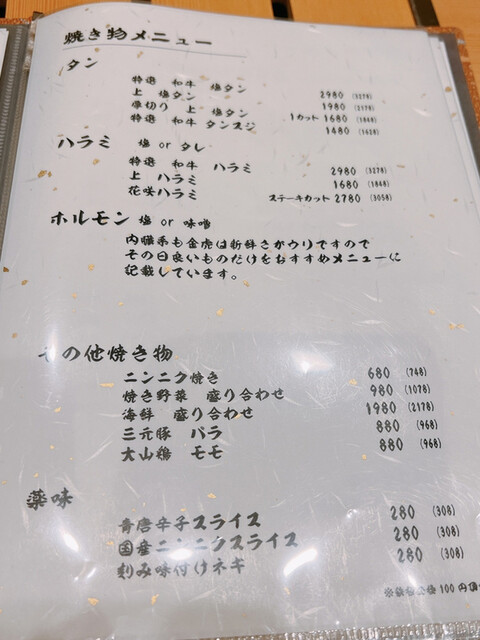 焼き物メニュー
タン
特選 和牛 塩タン 2980 (3278)
上 塩タン 1980 (2178)
厚切り 上 塩タン 1カット 1680 (1848)
特選 和牛 タンスジ 1480 (1628)
ハラミ 塩 or タレ
特選 和牛 ハラミ 2980 (3278)
上 ハラミ 1680 (1848)
花咲ハラミ ステーキカット 2780 (3058)
ホルモン 塩 or 味噌
内臓系も金虎は新鮮さがウリですので
その日良いものだけをおすすめメニューに
記載しています。
その他焼き物
ニンニク焼き 680 (748)
焼き野菜 盛り合わせ 980 (1078)
海鮮 盛り合わせ 1980 (2178)
三元豚 バラ 880 (968)
大山鶏 モモ 880 (968)
薬味
青唐辛子スライス 280 (308)
国産ニンニクスライス 280 (308)
刻み味付けネギ 280 (308)
100円頂